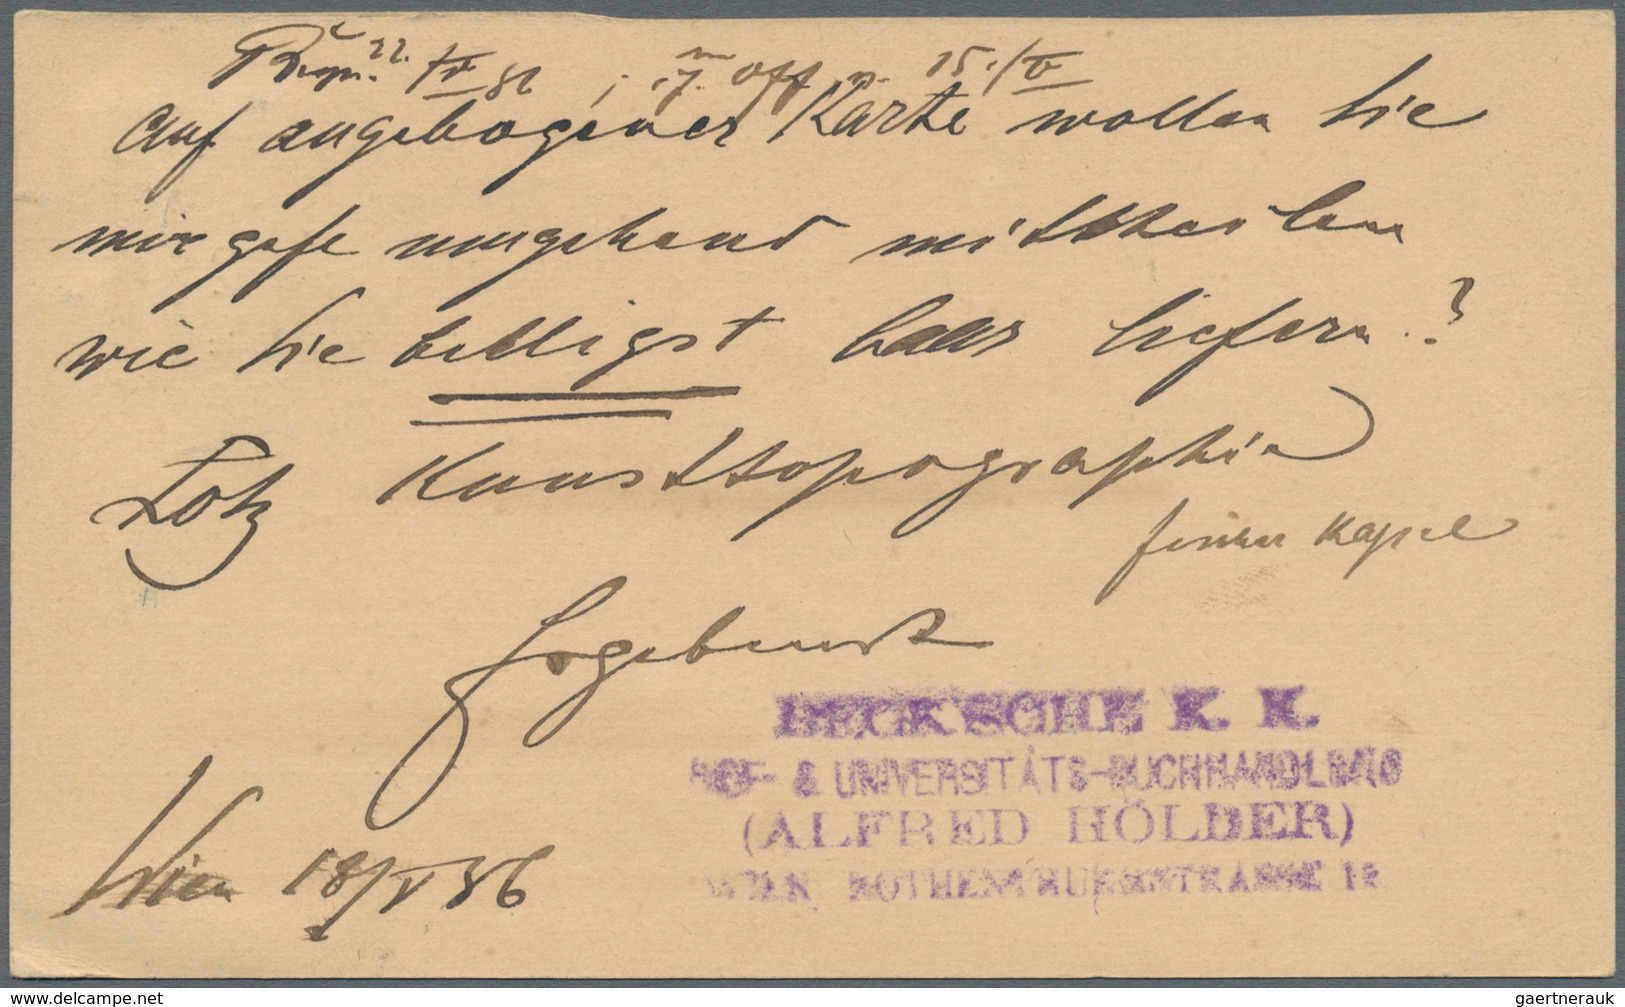 22./V 86 off. v. 15./V
Auf angebogener Karte wollen Sie
mir gefl umgehend mittheilen
wie Sie billigst baar liefern?
Lotz Kunsttopographie
Kassel
Ergebenst
BECK'SCHE K. K.
HOF- & UNIVERSITÄTS-BUCHHANDLUNG
(ALFRED HÖLDER)
WIEN, ROTHENTHURMSTRASSE 15
Wien 18/V 86
www.delcampe.net
gaertnerauk